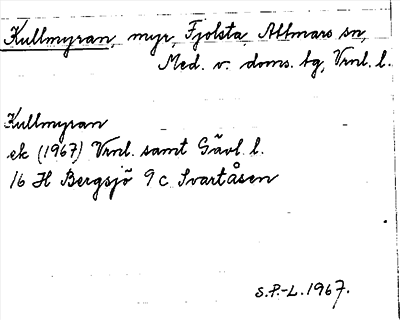 Kullmyran, myr, Fjolsta, Attmars sn,
Med. v. doms. tg, Vrnl. l.
Kullmyran
ek (1967) Vrnl. samt Gävl. l.
16 H Bergsjö 9 c Svartåsen
S.P.-L. 1967.